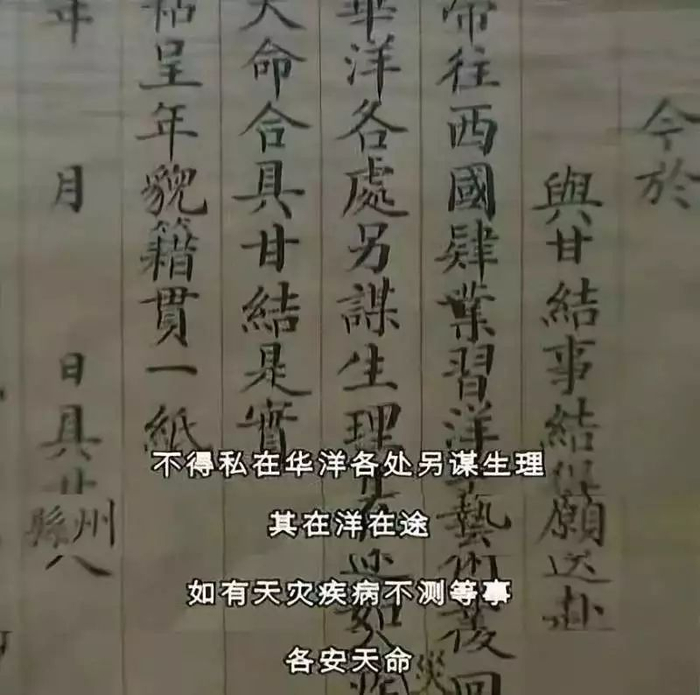 今於
與甘結事結得願送赴
帝往西國肄業習洋藝術後回
華洋各處另謀生理其近如
天命合具甘結是實
帖呈年貌籍貫一紙
年 月 日具甘
州
縣
八
不得私在华洋各处另谋生理
其在洋在途
如有天灾疾病不测等事
各安天命